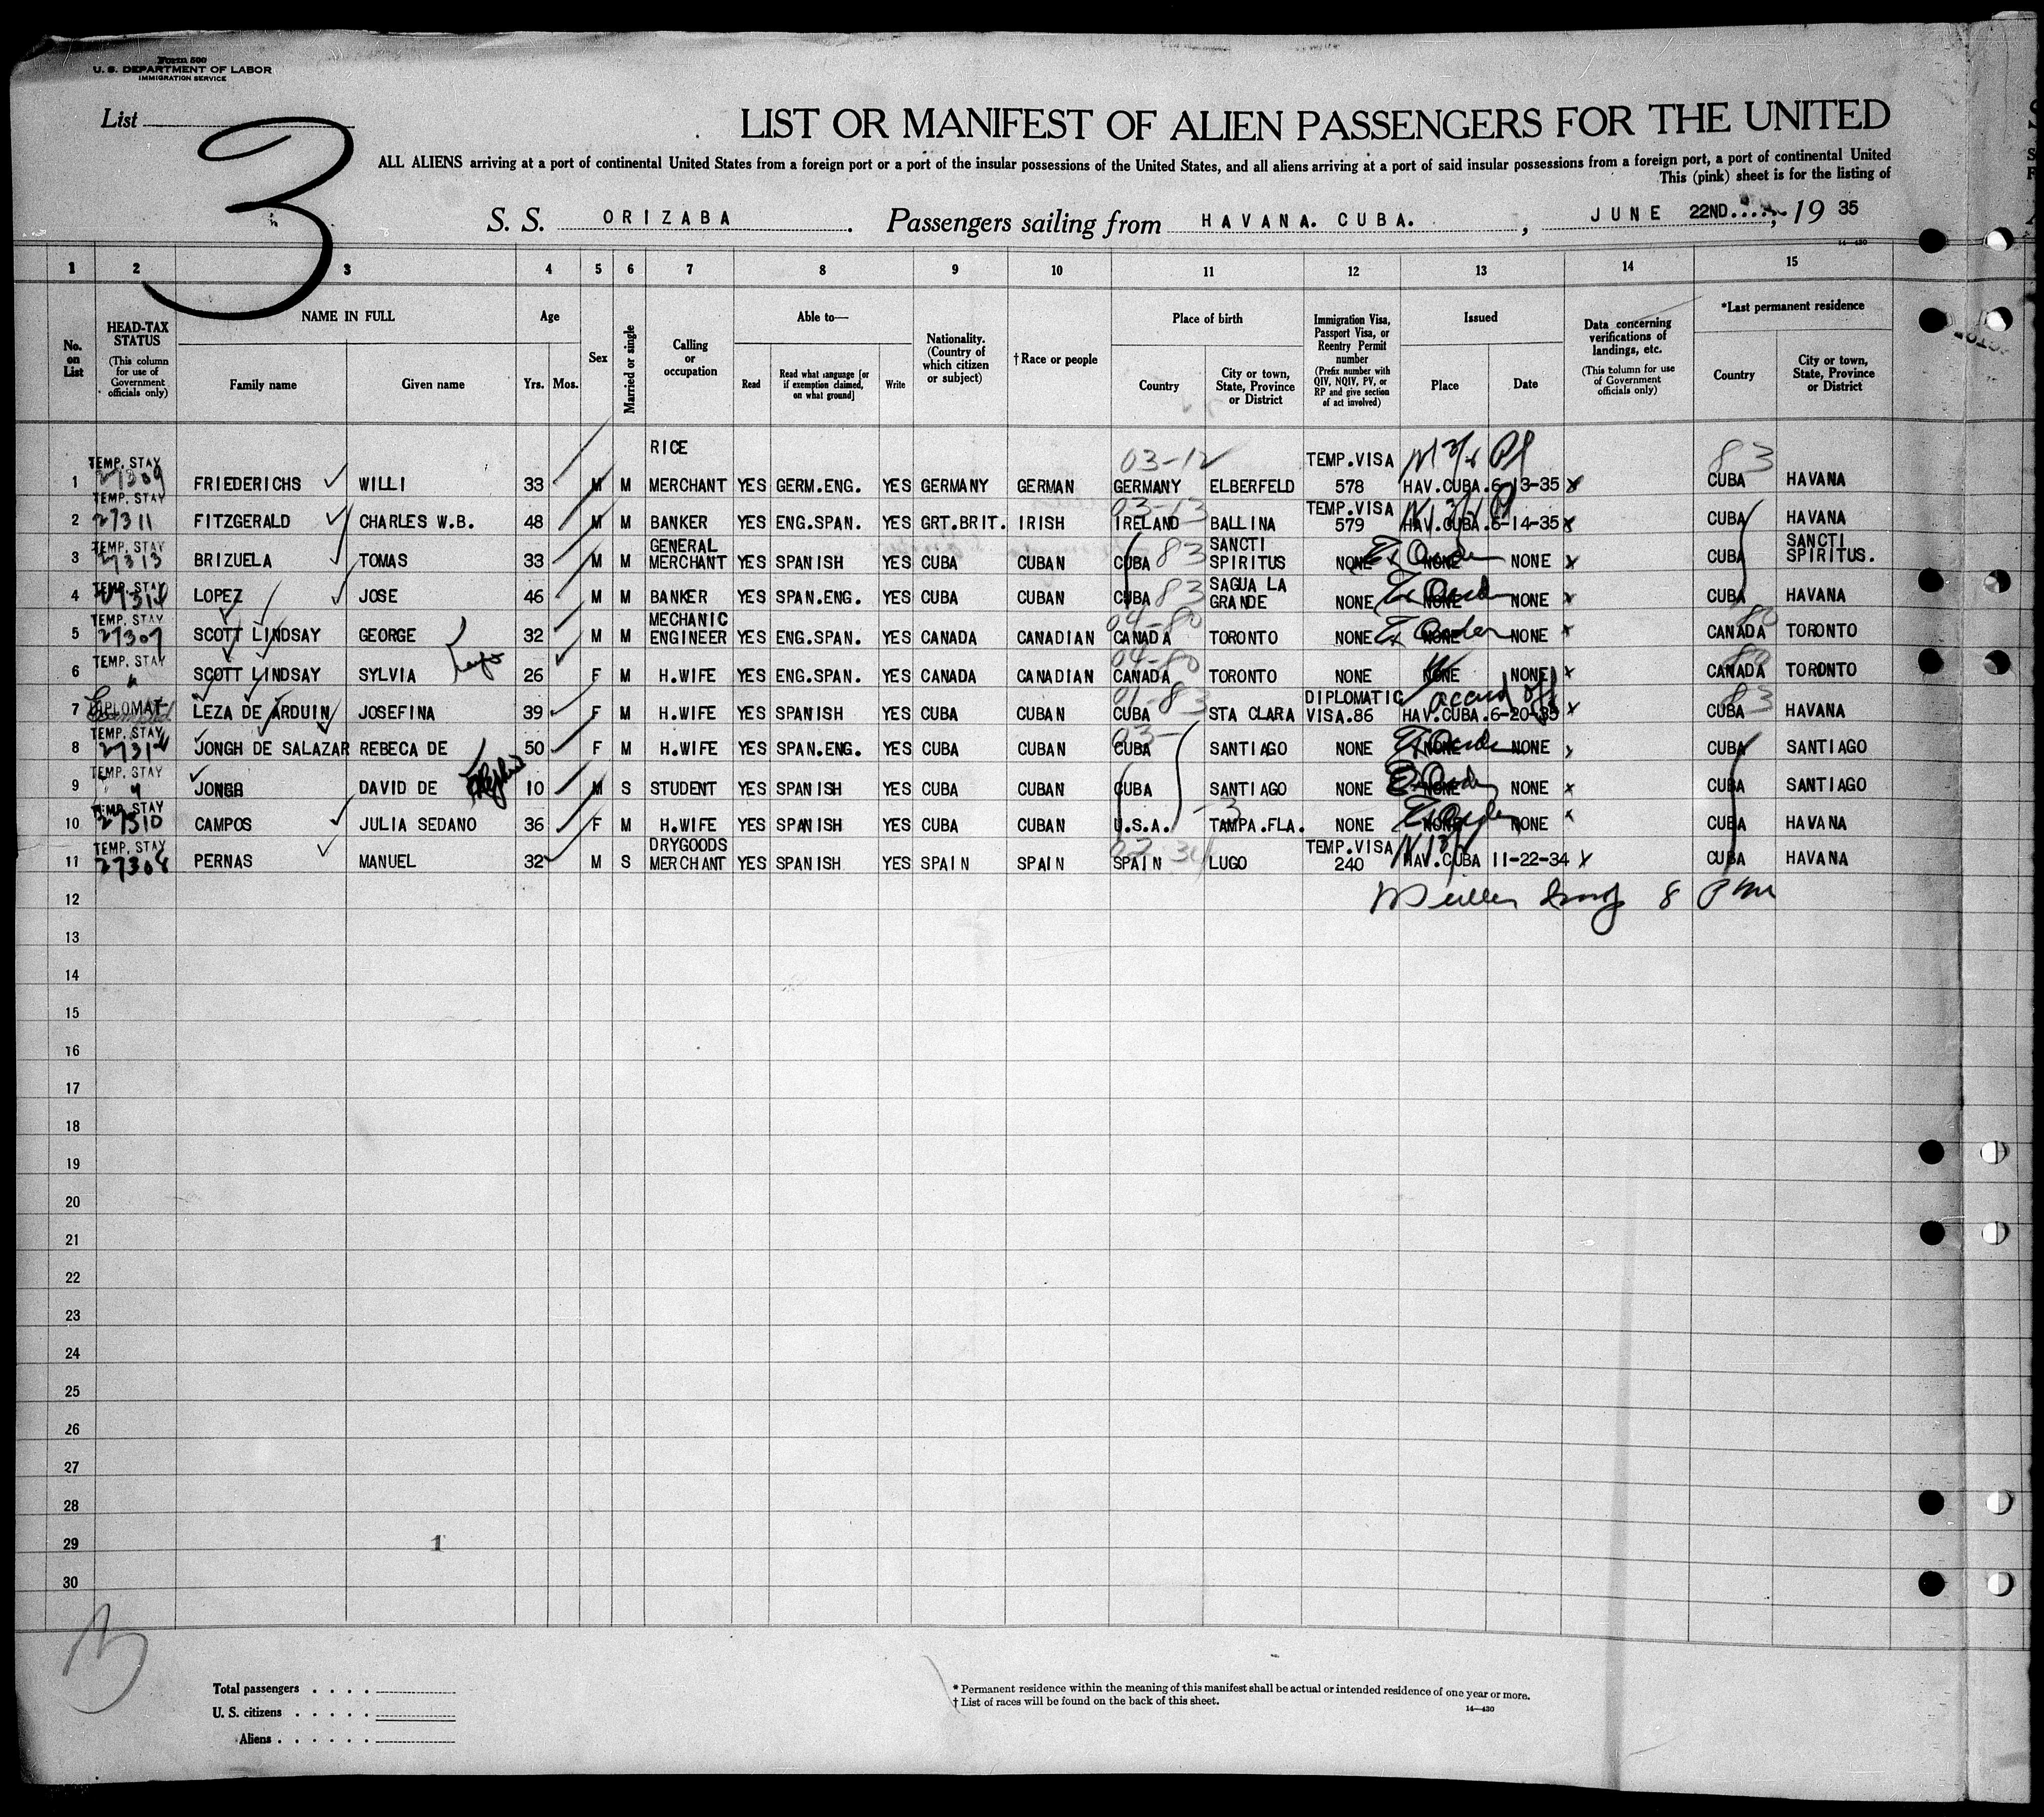 Form 500
U. S. DEPARTMENT OF LABOR
IMMIGRATION SERVICE
List 3
LIST OR MANIFEST OF ALIEN PASSENGERS FOR THE UNITED
ALL ALIENS arriving at a port of continental United States from a foreign port or a port of the insular possessions of the United States, and all aliens arriving at a port of said insular possessions from a foreign port, a port of continental United
This (pink) sheet is for the listing of
S. S. ORIZABA. Passengers sailing from HAVANA. CUBA., JUNE 22ND....., 19 35
14—430
1 2 3 4 5 6 7 8 9 10 11 12 13 14 15
No. on List
HEAD-TAX STATUS
(This column for use of Government officials only)
NAME IN FULL
Family name
Given name
Age
Yrs. Mos.
Sex
Married or single
Calling or occupation
Able to—
Read
Read what language [or if exemption claimed, on what ground]
Write
Nationality. (Country of which citizen or subject)
† Race or people
Place of birth
Country
City or town, State, Province or District
Immigration Visa, Passport Visa, or Reentry Permit number
(Prefix number with QIV, NQIV, PV, or RP and give section of act involved)
Issued
Place
Date
Data concerning verifications of landings, etc.
(This column for use of Government officials only)
*Last permanent residence
Country
City or town, State, Province or District
RICE
TEMP. STAY 03-12 TEMP.VISA 83
1 27309 FRIEDERICHS WILLI 33 M M MERCHANT YES GERM.ENG. YES GERMANY GERMAN GERMANY ELBERFELD 578 HAV.CUBA.6-13-35 CUBA HAVANA
TEMP. STAY 03-13 TEMP.VISA
2 27311 FITZGERALD CHARLES W.B. 48 M M BANKER YES ENG.SPAN. YES GRT.BRIT. IRISH IRELAND BALLINA 579 HAV.CUBA.6-14-35 CUBA HAVANA
TEMP. STAY GENERAL SANCTI SANCTI
3 27313 BRIZUELA TOMAS 33 M M MERCHANT YES SPANISH YES CUBA CUBAN CUBA 83 SPIRITUS NONE NONE NONE CUBA SPIRITUS.
TEMP. STAY SAGUA LA
4 LOPEZ JOSE 46 M M BANKER YES SPAN.ENG. YES CUBA CUBAN CUBA 83 GRANDE NONE NONE NONE CUBA HAVANA
TEMP. STAY MECHANIC 04-80 80
5 27307 SCOTT LINDSAY GEORGE 32 M M ENGINEER YES ENG.SPAN. YES CANADA CANADIAN CANADA TORONTO NONE NONE NONE CANADA TORONTO
TEMP. STAY 04-80
6 " SCOTT LINDSAY SYLVIA 26 F M H.WIFE YES ENG.SPAN. YES CANADA CANADIAN CANADA TORONTO NONE NONE NONE CANADA TORONTO
DIPLOMAT 01-83 DIPLOMATIC 83
7 LEZA DE ARDUIN JOSEFINA 39 F M H.WIFE YES SPANISH YES CUBA CUBAN CUBA STA CLARA VISA.86 HAV.CUBA.6-20-35 CUBA HAVANA
TEMP. STAY 03-
8 JONGH DE SALAZAR REBECA DE 50 F M H.WIFE YES SPAN.ENG. YES CUBA CUBAN CUBA SANTIAGO NONE NONE NONE CUBA SANTIAGO
TEMP. STAY
9 " JONGH DAVID DE 10 M S STUDENT YES SPANISH YES CUBA CUBAN CUBA SANTIAGO NONE NONE NONE CUBA SANTIAGO
TEMP. STAY
10 27310 CAMPOS JULIA SEDANO 36 F M H.WIFE YES SPANISH YES CUBA CUBAN U.S.A. TAMPA.FLA. NONE NONE NONE CUBA HAVANA
TEMP. STAY DRYGOODS TEMP.VISA
11 PERNAS MANUEL 32 M S MERCHANT YES SPANISH YES SPAIN SPAIN SPAIN LUGO 240 HAV.CUBA 11-22-34 CUBA HAVANA
12 8 PM
13
14
15
16
17
18
19
20
21
22
23
24
25
26
27
28
29 1
30
Total passengers . . . .
U. S. citizens . . . . .
Aliens . . . . . .
* Permanent residence within the meaning of this manifest shall be actual or intended residence of one year or more.
† List of races will be found on the back of this sheet.
14—430